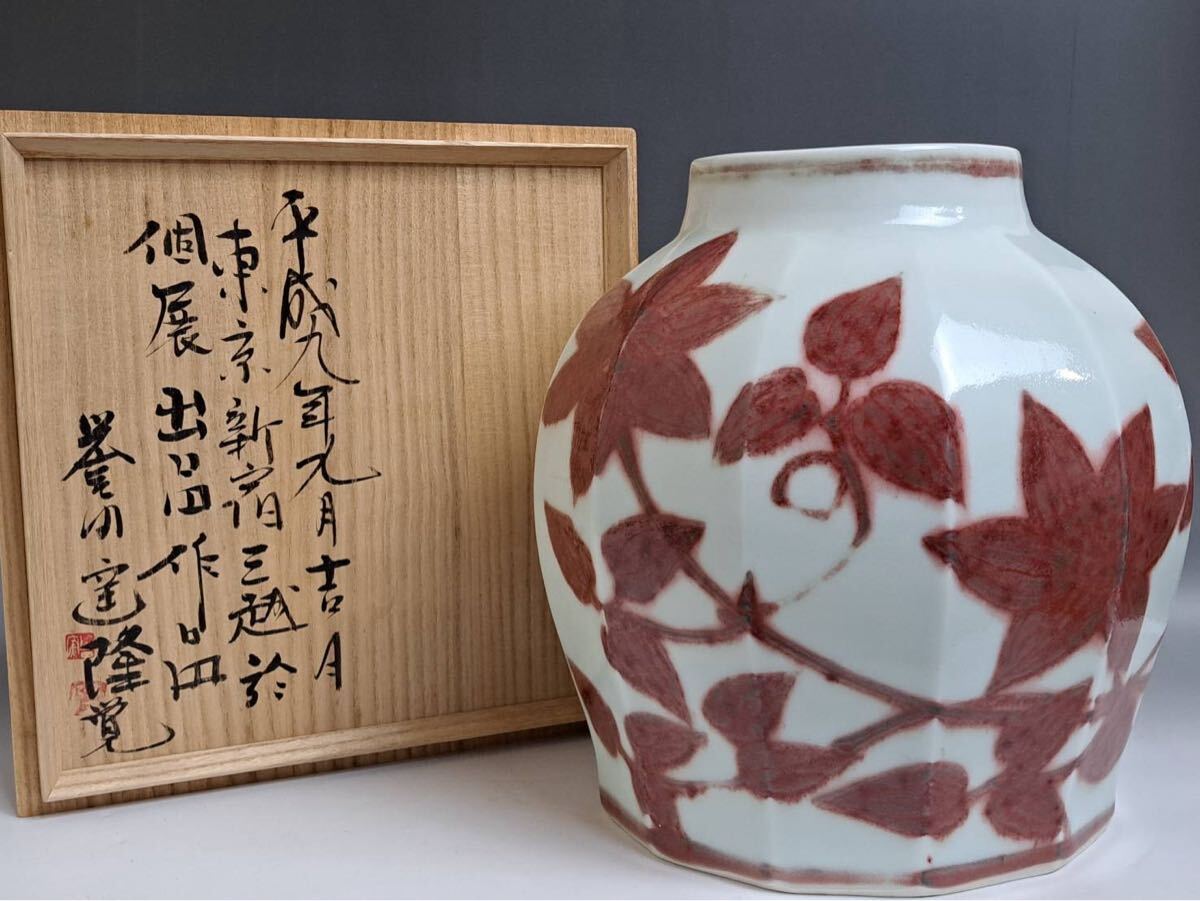 平成九年九月吉月
東京新宿三越於
個展出品作品
窯隆覚